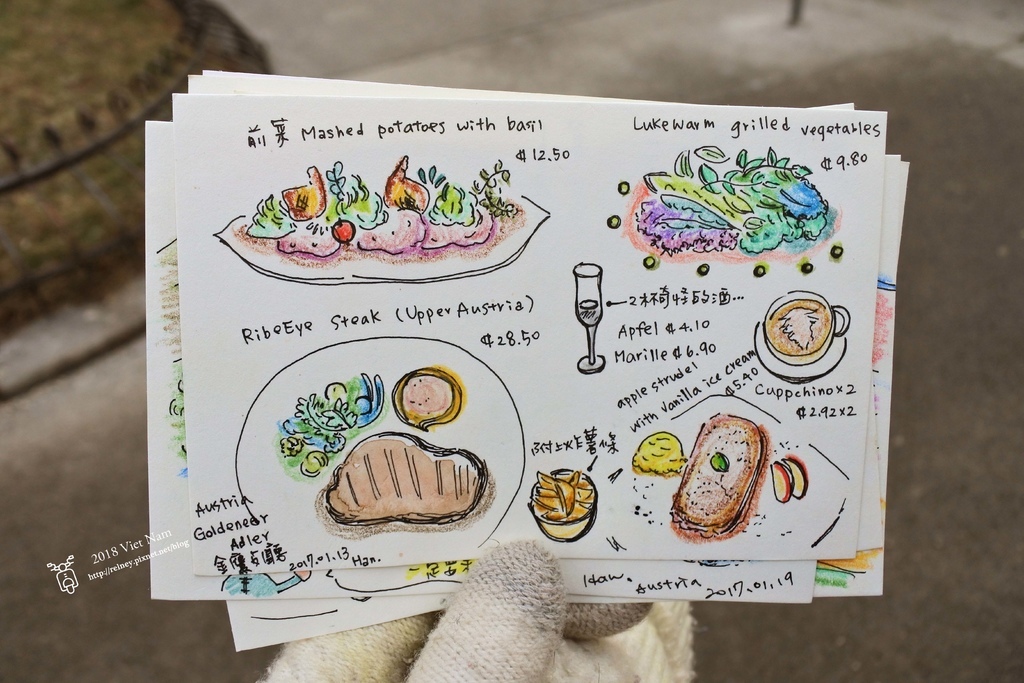 前菜 Mashed potatoes with basil
₡12.50
Lukewarm grilled vegetables
₡9.80
RibeEye Steak (Upper Austria)
₡28.50
2杯奇怪的酒...
Apfel ₡4.10
Marille ₡6.90
apple strudel
with vanilla ice cream
₡5.40
Cuppchino×2
₡2.92×2
附上炸薯條
Austria
Goldener
Adler
金鷹餐廳
2017.01.13
Han.
Han.
Austria
2017.01.19
2018 Viet Nam
http://reiney.pixnet.net/blog